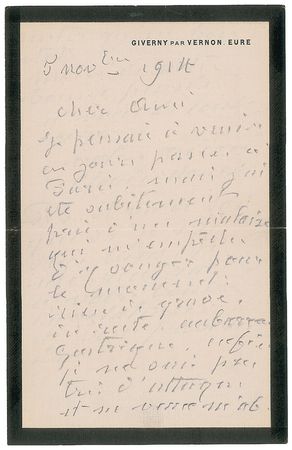 GIVERNY PAR VERNON. EURE
5 novbre 1914
cher ami
Je pensais à venir
ces jours passés à
Paris mais j'ai
été subitement
pris d'un malaise
qui m'empêche
d'y songer pour
le moment.
rien de grave,
embarras
gastrique, enfin
je ne suis pas